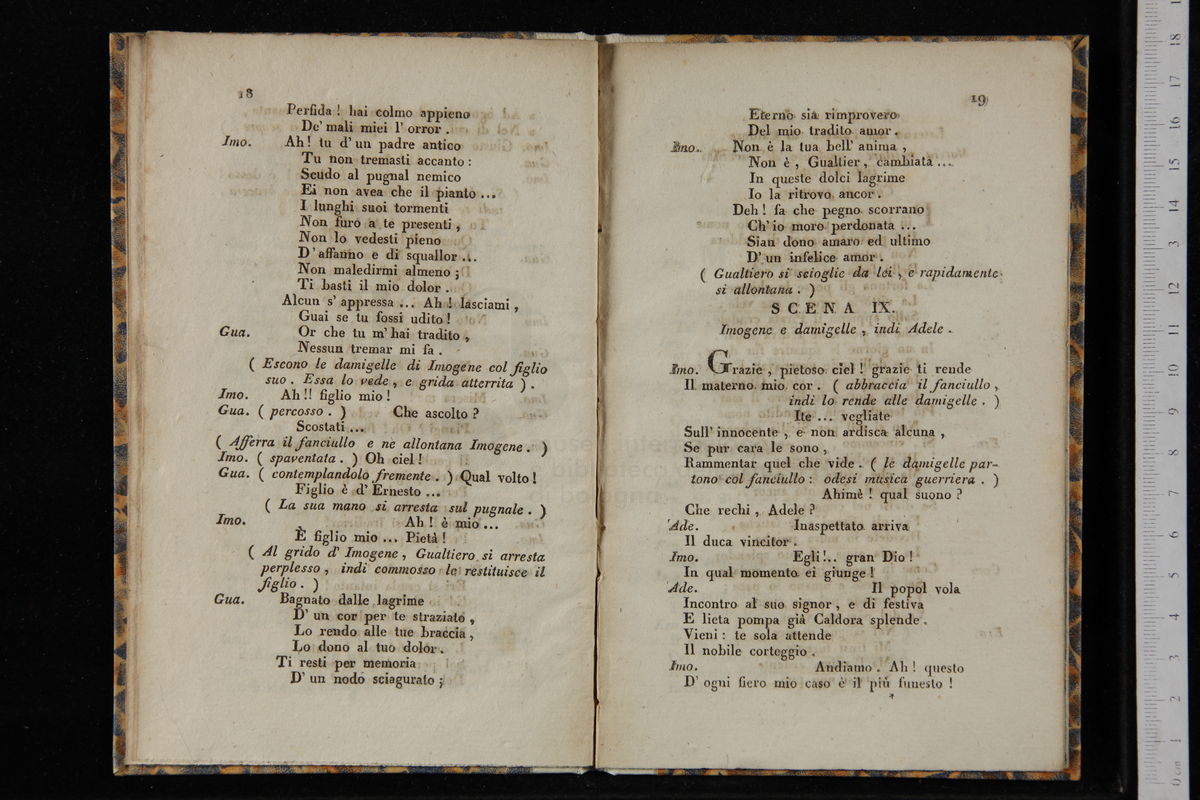 18
Perfida ! hai colmo appieno
De' mali miei l' orror .
Imo. Ah! tu d' un padre antico
Tu non tremasti accanto :
Scudo al pugnal nemico
Ei non avea che il pianto ...
I lunghi suoi tormenti
Non furo a te presenti ,
Non lo vedesti pieno
D' affanno e di squallor ...
Non maledirmi almeno ;
Ti basti il mio dolor .
Alcun s' appressa ... Ah ! lasciami ,
Guai se tu fossi udito !
Gua. Or che tu m' hai tradito ,
Nessun tremar mi fa .
( Escono le damigelle di Imogene col figlio
suo . Essa lo vede , e grida atterrita ) .
Imo. Ah!! figlio mio !
Gua. ( percosso . ) Che ascolto ?
Scostati ...
( Afferra il fanciullo e ne allontana Imogene . )
Imo. ( spaventata . ) Oh ciel !
Gua. ( contemplandolo fremente . ) Qual volto !
Figlio è d' Ernesto ...
( La sua mano si arresta sul pugnale . )
Imo. Ah ! è mio ...
È figlio mio ... Pietà !
( Al grido d' Imogene , Gualtiero si arresta
perplesso , indi commosso le restituisce il
figlio . )
Gua. Bagnato dalle lagrime
D' un cor per te straziato ,
Lo rendo alle tue braccia ,
Lo dono al tuo dolor .
Ti resti per memoria
D' un nodo sciagurato ;
19
Eterno sia rimprovero
Del mio tradito amor .
Imo. Non è la tua bell' anima ,
Non è , Gualtier , cambiata ...
In queste dolci lagrime
Io la ritrovo ancor .
Deh ! fa che pegno scorrano
Ch' io moro perdonata ...
Sian dono amaro ed ultimo
D' un infelice amor .
( Gualtiero si scioglie da lei , e rapidamente
si allontana . )
SCENA IX.
Imogene e damigelle , indi Adele .
Imo. Grazie , pietoso ciel ! grazie ti rende
Il materno mio cor . ( abbraccia il fanciullo ,
indi lo rende alle damigelle . )
Ite ... vegliate
Sull' innocente , e non ardisca alcuna ,
Se pur cara le sono ,
Rammentar quel che vide . ( le damigelle par-
tono col fanciullo : odesi musica guerriera . )
Ahimè ! qual suono ?
Che rechi , Adele ?
Ade. Inaspettato arriva
Il duca vincitor .
Imo. Egli !.. gran Dio !
In qual momento ei giunge !
Ade. Il popol vola
Incontro al suo signor , e di festiva
E lieta pompa già Caldora splende .
Vieni : te sola attende
Il nobile corteggio .
Imo. Andiamo . Ah ! questo
D' ogni fiero mio caso è il più funesto !
*